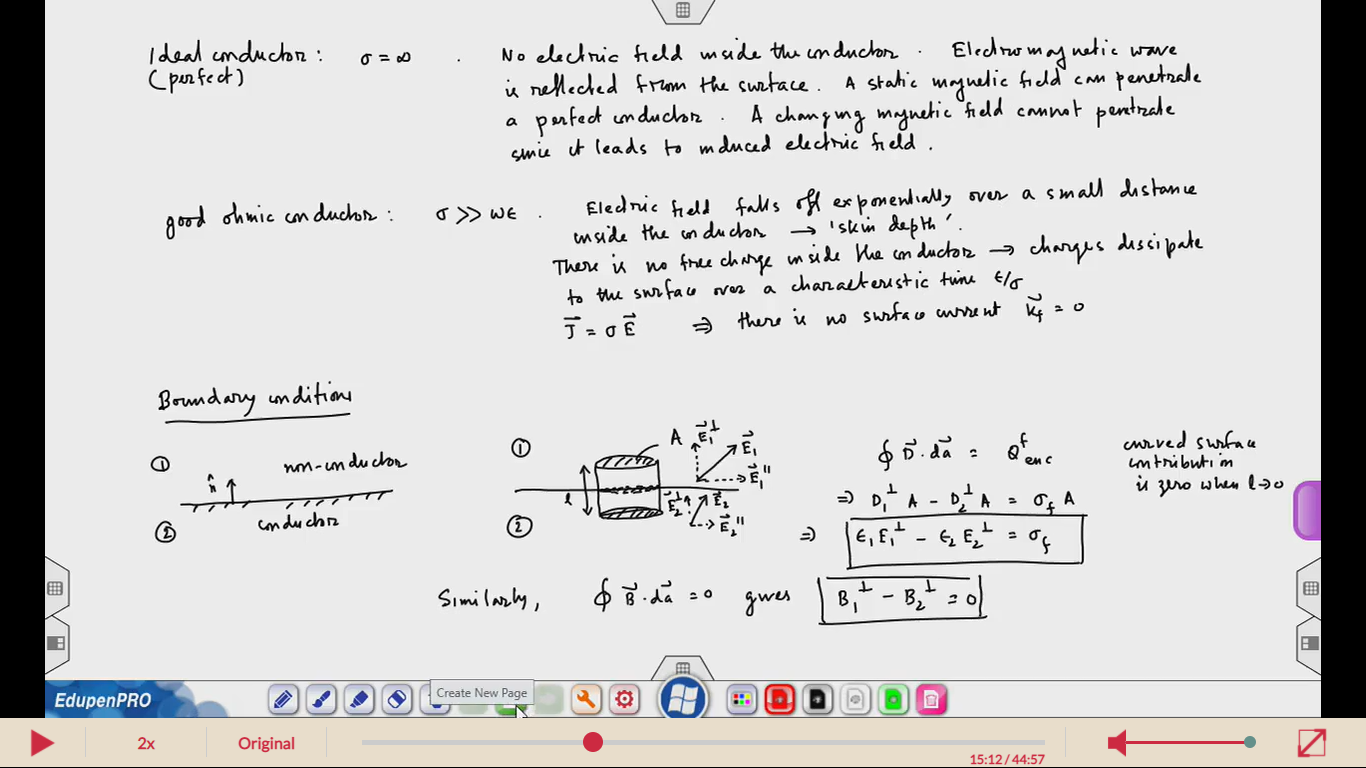 Ideal conductor : σ = ∞ . No electric field inside the conductor . Electromagnetic wave
(perfect) is reflected from the surface . A static magnetic field can penetrate
a perfect conductor . A changing magnetic field cannot penetrate
since it leads to induced electric field .
good ohmic conductor : σ >> ωϵ . Electric field falls off exponentially over a small distance
inside the conductor → 'skin depth' .
There is no free charge inside the conductor → charges dissipate
to the surface over a characteristic time ϵ/σ
J⃗ = σ E⃗ ⇒ there is no surface current K⃗_f = 0
Boundary conditions
① non-conductor
n̂
② conductor
① A E⃗₁^⊥ E⃗₁
E⃗₁^∥
l
② E⃗₂^⊥ E⃗₂
E⃗₂^∥
∮ D⃗ · da⃗ = Q^f_enc
curved surface
contribution
is zero when l→0
⇒ D₁^⊥ A − D₂^⊥ A = σ_f A
⇒ ϵ₁E₁^⊥ − ϵ₂E₂^⊥ = σ_f
Similarly, ∮ B⃗ · da⃗ = 0 gives B₁^⊥ − B₂^⊥ = 0
Create New Page
EdupenPRO
2x Original 15:12 / 44:57